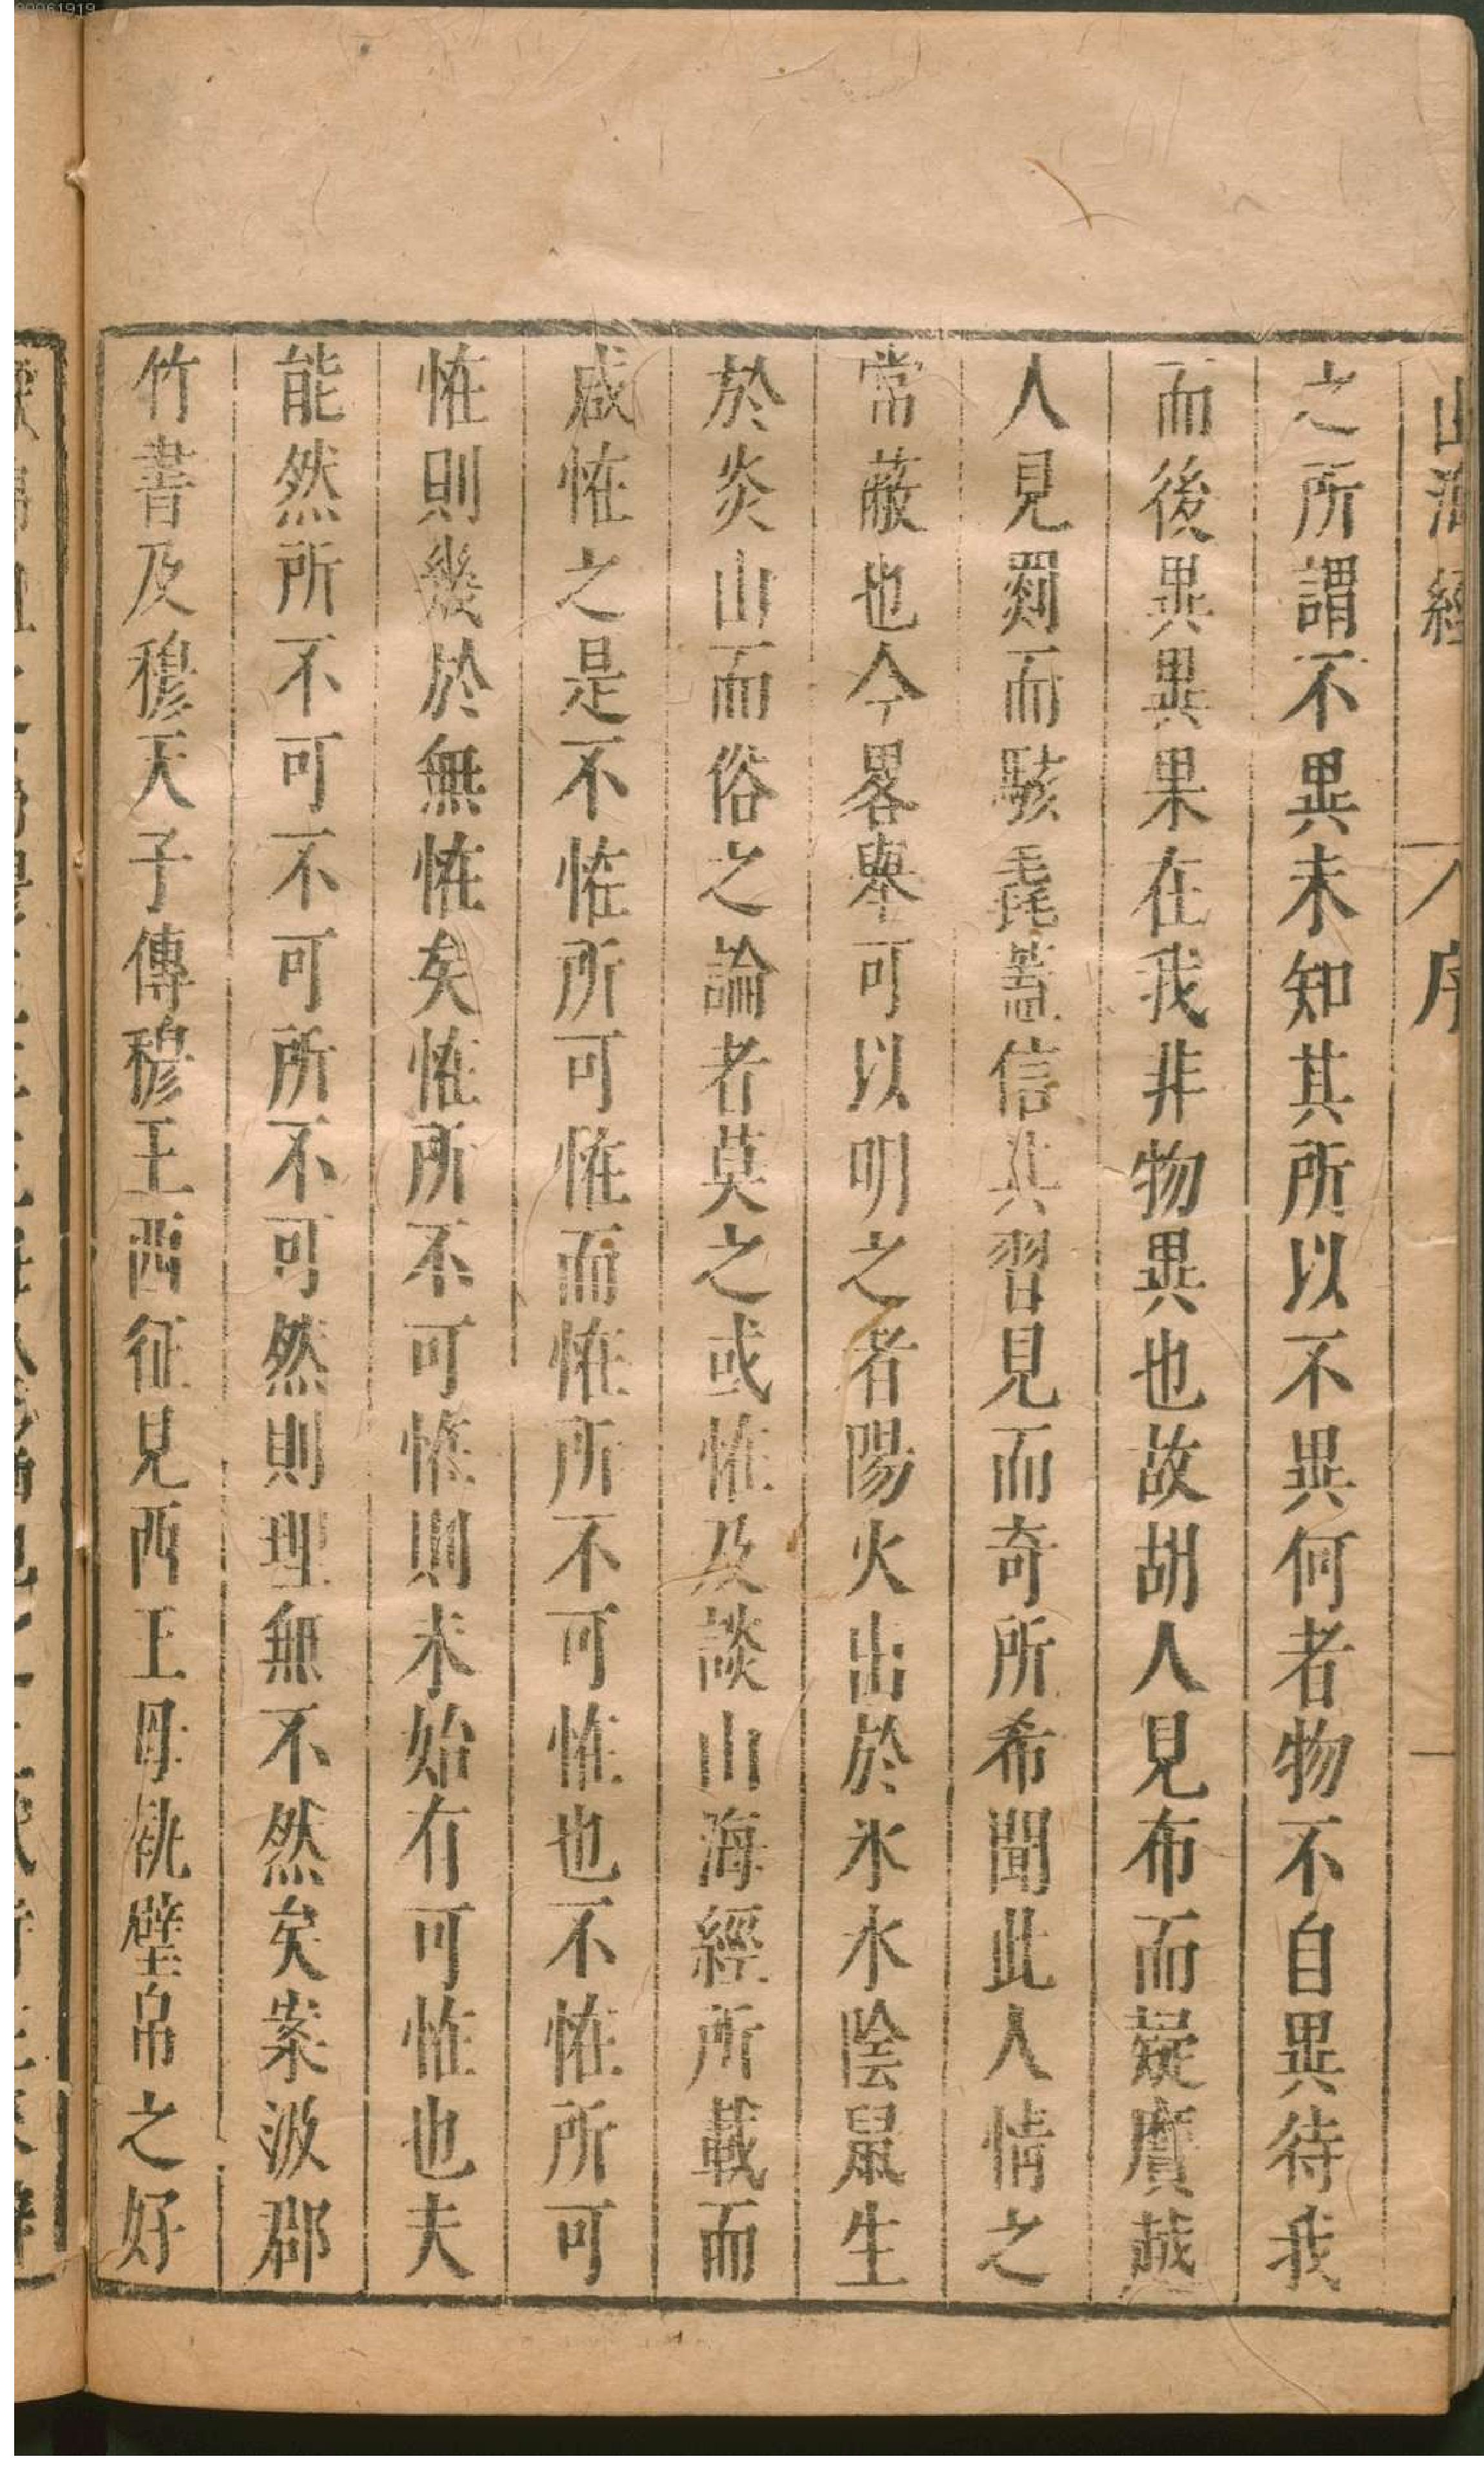 山海經 序 一
之所謂不異未知其所以不異何者物不自異待我
而後異異果在我非物異也故胡人見布而疑黂越
人見罽而駭毳蓋信其習見而奇所希聞此人情之
常蔽也今畧舉可以明之者陽火出於氷水陰鼠生
於炎山而俗之論者莫之或恠及談山海經所載而
咸恠之是不恠所可恠而恠所不可恠也不恠所可
恠則幾於無恠矣恠所不可恠則未始有可恠也夫
能然所不可不可所不可然則理無不然矣案汲郡
竹書及穆天子傳穆王西征見西王母執璧帛之好